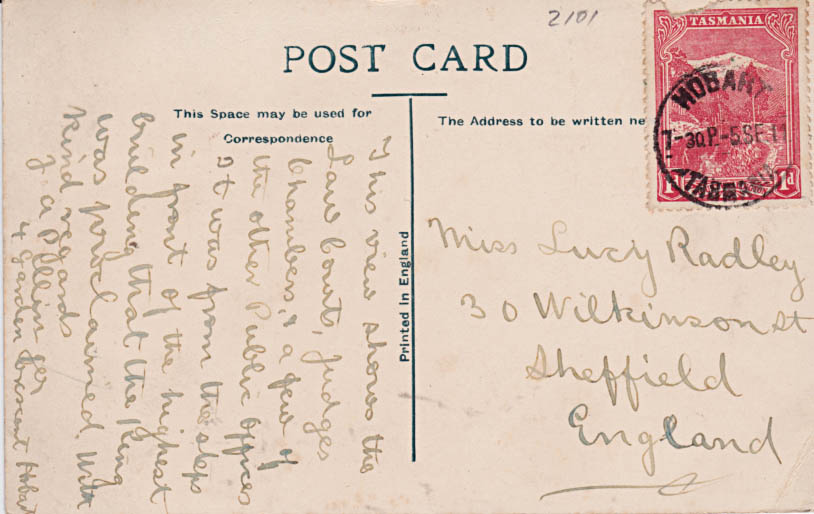 2101
POST CARD
This Space may be used for
Correspondence
The Address to be written he
Printed in England
TASMANIA
HOBART
7-30P-5SE11
TASMANIA
1d 1d
This view shows the
Law Courts, Judges
Chambers, & a few of
the other Public Offices
It was from the steps
in front of the highest
building that the King
was proclaimed. With
kind regards
4 Garden Crescent Hobart
Miss Lucy Radley
30 Wilkinson St
Sheffield
England